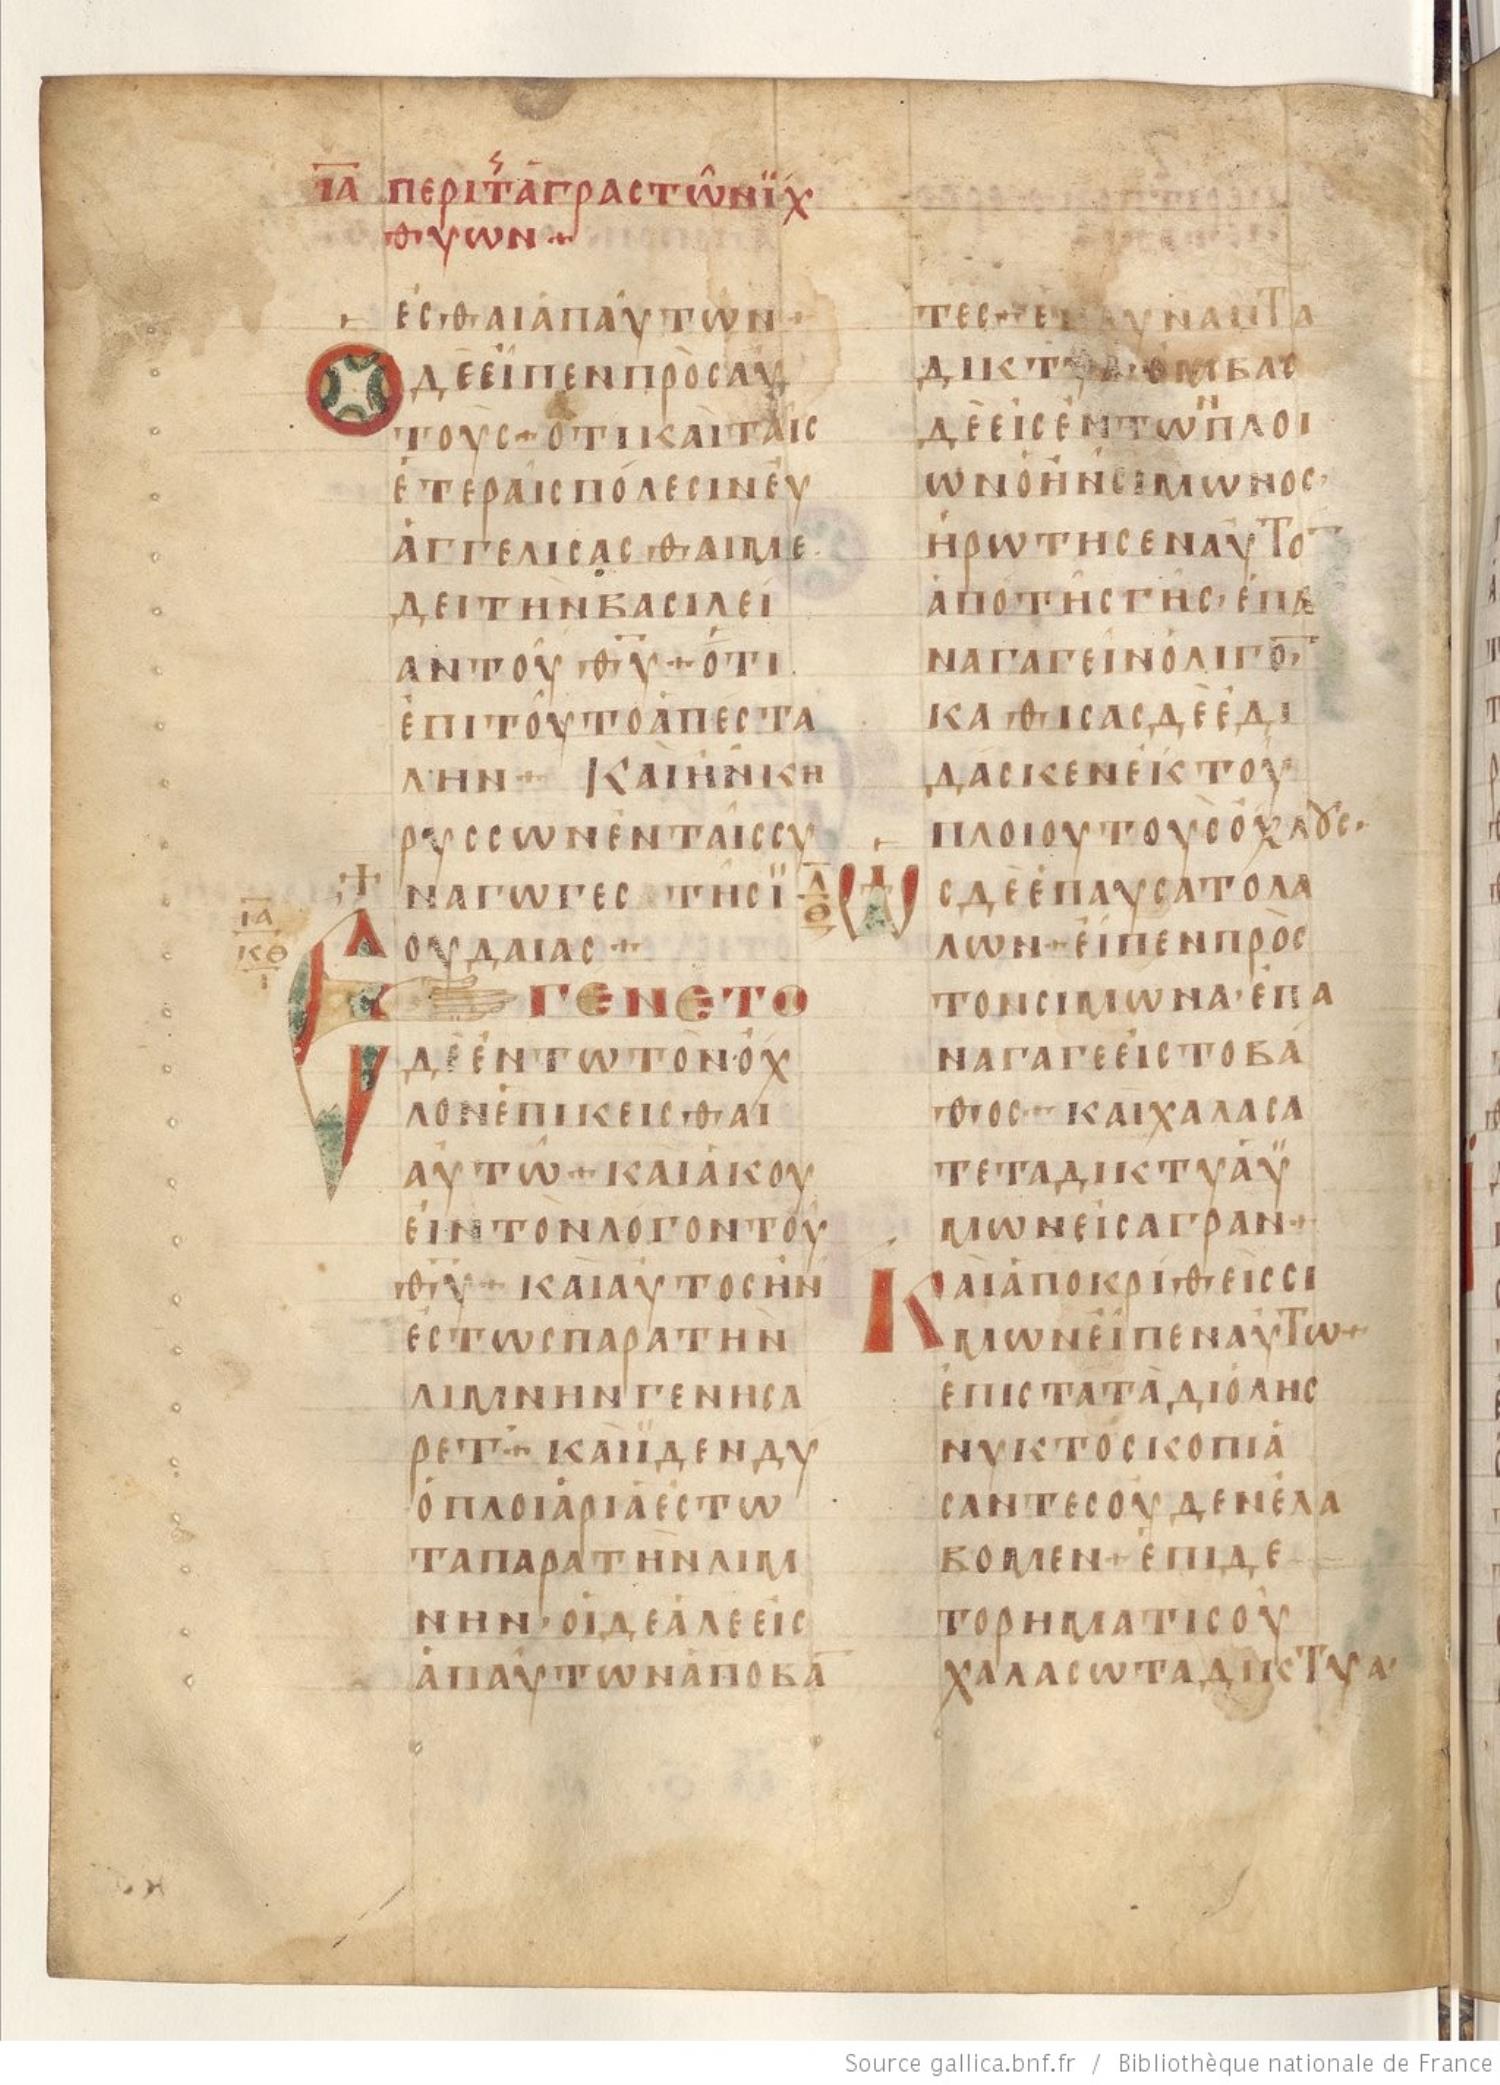 ΙΑ ΠΕΡΙ Τ͂ ΑΓΡΑΣ ΤΩ͂Ν ΪΧ
ΘΥΩΝ +
ΕΣΘΑΙ ΑΠ ΑΥΤΩΝ +
Ο ΔΕ ΕΙΠΕΝ ΠΡΟΣ ΑΥ
ΤΟΥΣ + ΟΤΙ ΚΑΙ ΤΑΙΣ
ΕΤΕΡΑΙΣ ΠΟΛΕΣΙΝ ΕΥ
ΑΓΓΕΛΙΣΑΣΘΑΙ ΜΕ
ΔΕΙ ΤΗΝ ΒΑΣΙΛΕΙ
ΑΝ ΤΟΥ Θ̅Υ̅ + ΟΤΙ
ΕΠΙ ΤΟΥΤΟ ΑΠΕΣΤΑ
ΛΗΝ + ΚΑΙ ΗΝ ΚΗ
ΡΥΣΣΩΝ ΕΝ ΤΑΙΣ ΣΥ
ΝΑΓΩΓΕΣ ΤΗΣ Ϊ
ΟΥΔΑΙΑΣ +
ΙΑ
ΚΘ
Ι
ΕΓΕΝΕΤΟ
ΔΕ ΕΝ ΤΩ ΤΟΝ ΟΧ
ΛΟΝ ΕΠΙΚΕΙΣΘΑΙ
ΑΥΤΩ + ΚΑΙ ΑΚΟΥ
ΕΙΝ ΤΟΝ ΛΟΓΟΝ ΤΟΥ
Θ̅Υ̅ + ΚΑΙ ΑΥΤΟΣ ΗΝ
ΕΣΤΩΣ ΠΑΡΑ ΤΗΝ
ΛΙΜΝΗΝ ΓΕΝΗΣΑ
ΡΕΤ + ΚΑΙ ΪΔΕΝ ΔΥ
Ο ΠΛΟΙΑΡΙΑ ΕΣΤΩ
ΤΑ ΠΑΡΑ ΤΗΝ ΛΙΜ
ΝΗΝ · ΟΙ ΔΕ ΑΛΕΕΙΣ
ΑΠ ΑΥΤΩΝ ΑΠΟΒΑ̅
ΤΕΣ + ΝΑΝ ΤΑ
ΔΙΚΤΥΑ · ΕΜΒΑΣ
ΔΕ ΕΙΣ ΕΝ ΤΩΝ ΠΛΟΙ
ΩΝ Ο ΗΝ ΣΙΜΩΝΟΣ ·
ΗΡΩΤΗΣΕΝ ΑΥΤΟ̅
ΑΠΟ ΤΗΣ ΓΗΣ · ΕΠΑ
ΝΑΓΑΓΕΙΝ ΟΛΙΓΟ̅ ·
ΚΑΘΙΣΑΣ ΔΕ ΕΔΙ
ΔΑΣΚΕΝ ΕΚ ΤΟΥ
ΠΛΟΙΟΥ ΤΟΥΣ ΟΧΛΟΥΣ ·
ΛΘ
Ι
ΩΣ ΔΕ ΕΠΑΥΣΑΤΟ ΛΑ
ΛΩΝ + ΕΙΠΕΝ ΠΡΟΣ
ΤΟΝ ΣΙΜΩΝΑ · ΕΠΑ
ΝΑΓΑΓΕ ΕΙΣ ΤΟ ΒΑ
ΘΟΣ + ΚΑΙ ΧΑΛΑΣΑ
ΤΕ ΤΑ ΔΙΚΤΥΑ Ϋ
ΜΩΝ ΕΙΣ ΑΓΡΑΝ +
ΚΑΙ ΑΠΟΚΡΙΘΕΙΣ ΣΙ
ΜΩΝ ΕΙΠΕΝ ΑΥΤΩ +
ΕΠΙΣΤΑΤΑ ΔΙ ΟΛΗΣ
ΝΥΚΤΟΣ ΚΟΠΙΑ
ΣΑΝΤΕΣ ΟΥΔΕΝ ΕΛΑ
ΒΟΜΕΝ + ΕΠΙ ΔΕ
ΤΟ ΡΗΜΑΤΙ ΣΟΥ
ΧΑΛΑΣΩ ΤΑ ΔΙΚΤΥΑ ·
Source gallica.bnf.fr / Bibliothèque nationale de France